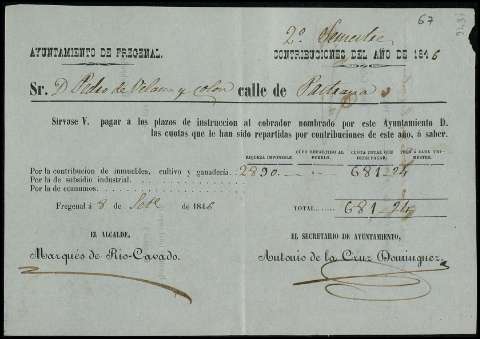 67
2º Semestre
AYUNTAMIENTO DE FREGENAL.
CONTRIBUCIONES DEL AÑO DE 1846
Sr. D. Pedro de Velasco y Colon calle de
Sirvase V. pagar a los plazos de instruccion al cobrador nombrado por este Ayuntamiento D.
las cuotas que le han sido repartidas por contribuciones de este año, á saber.
RIQUEZA IMPONIBLE.
CUOTA TOTAL QUE DEBE PAGAR.
Por la contribucion de inmuebles, cultivo y ganadería. 2890 681..24
Por la de subsidio industrial.
Por la de consumos.
Fregenal á 8 de Sete de 1846
TOTAL 681..24
EL ALCALDE,
Marqués de Rio-Cavado.
EL SECRETARIO DE AYUNTAMIENTO,
Antonio de la Cruz Dominguez.